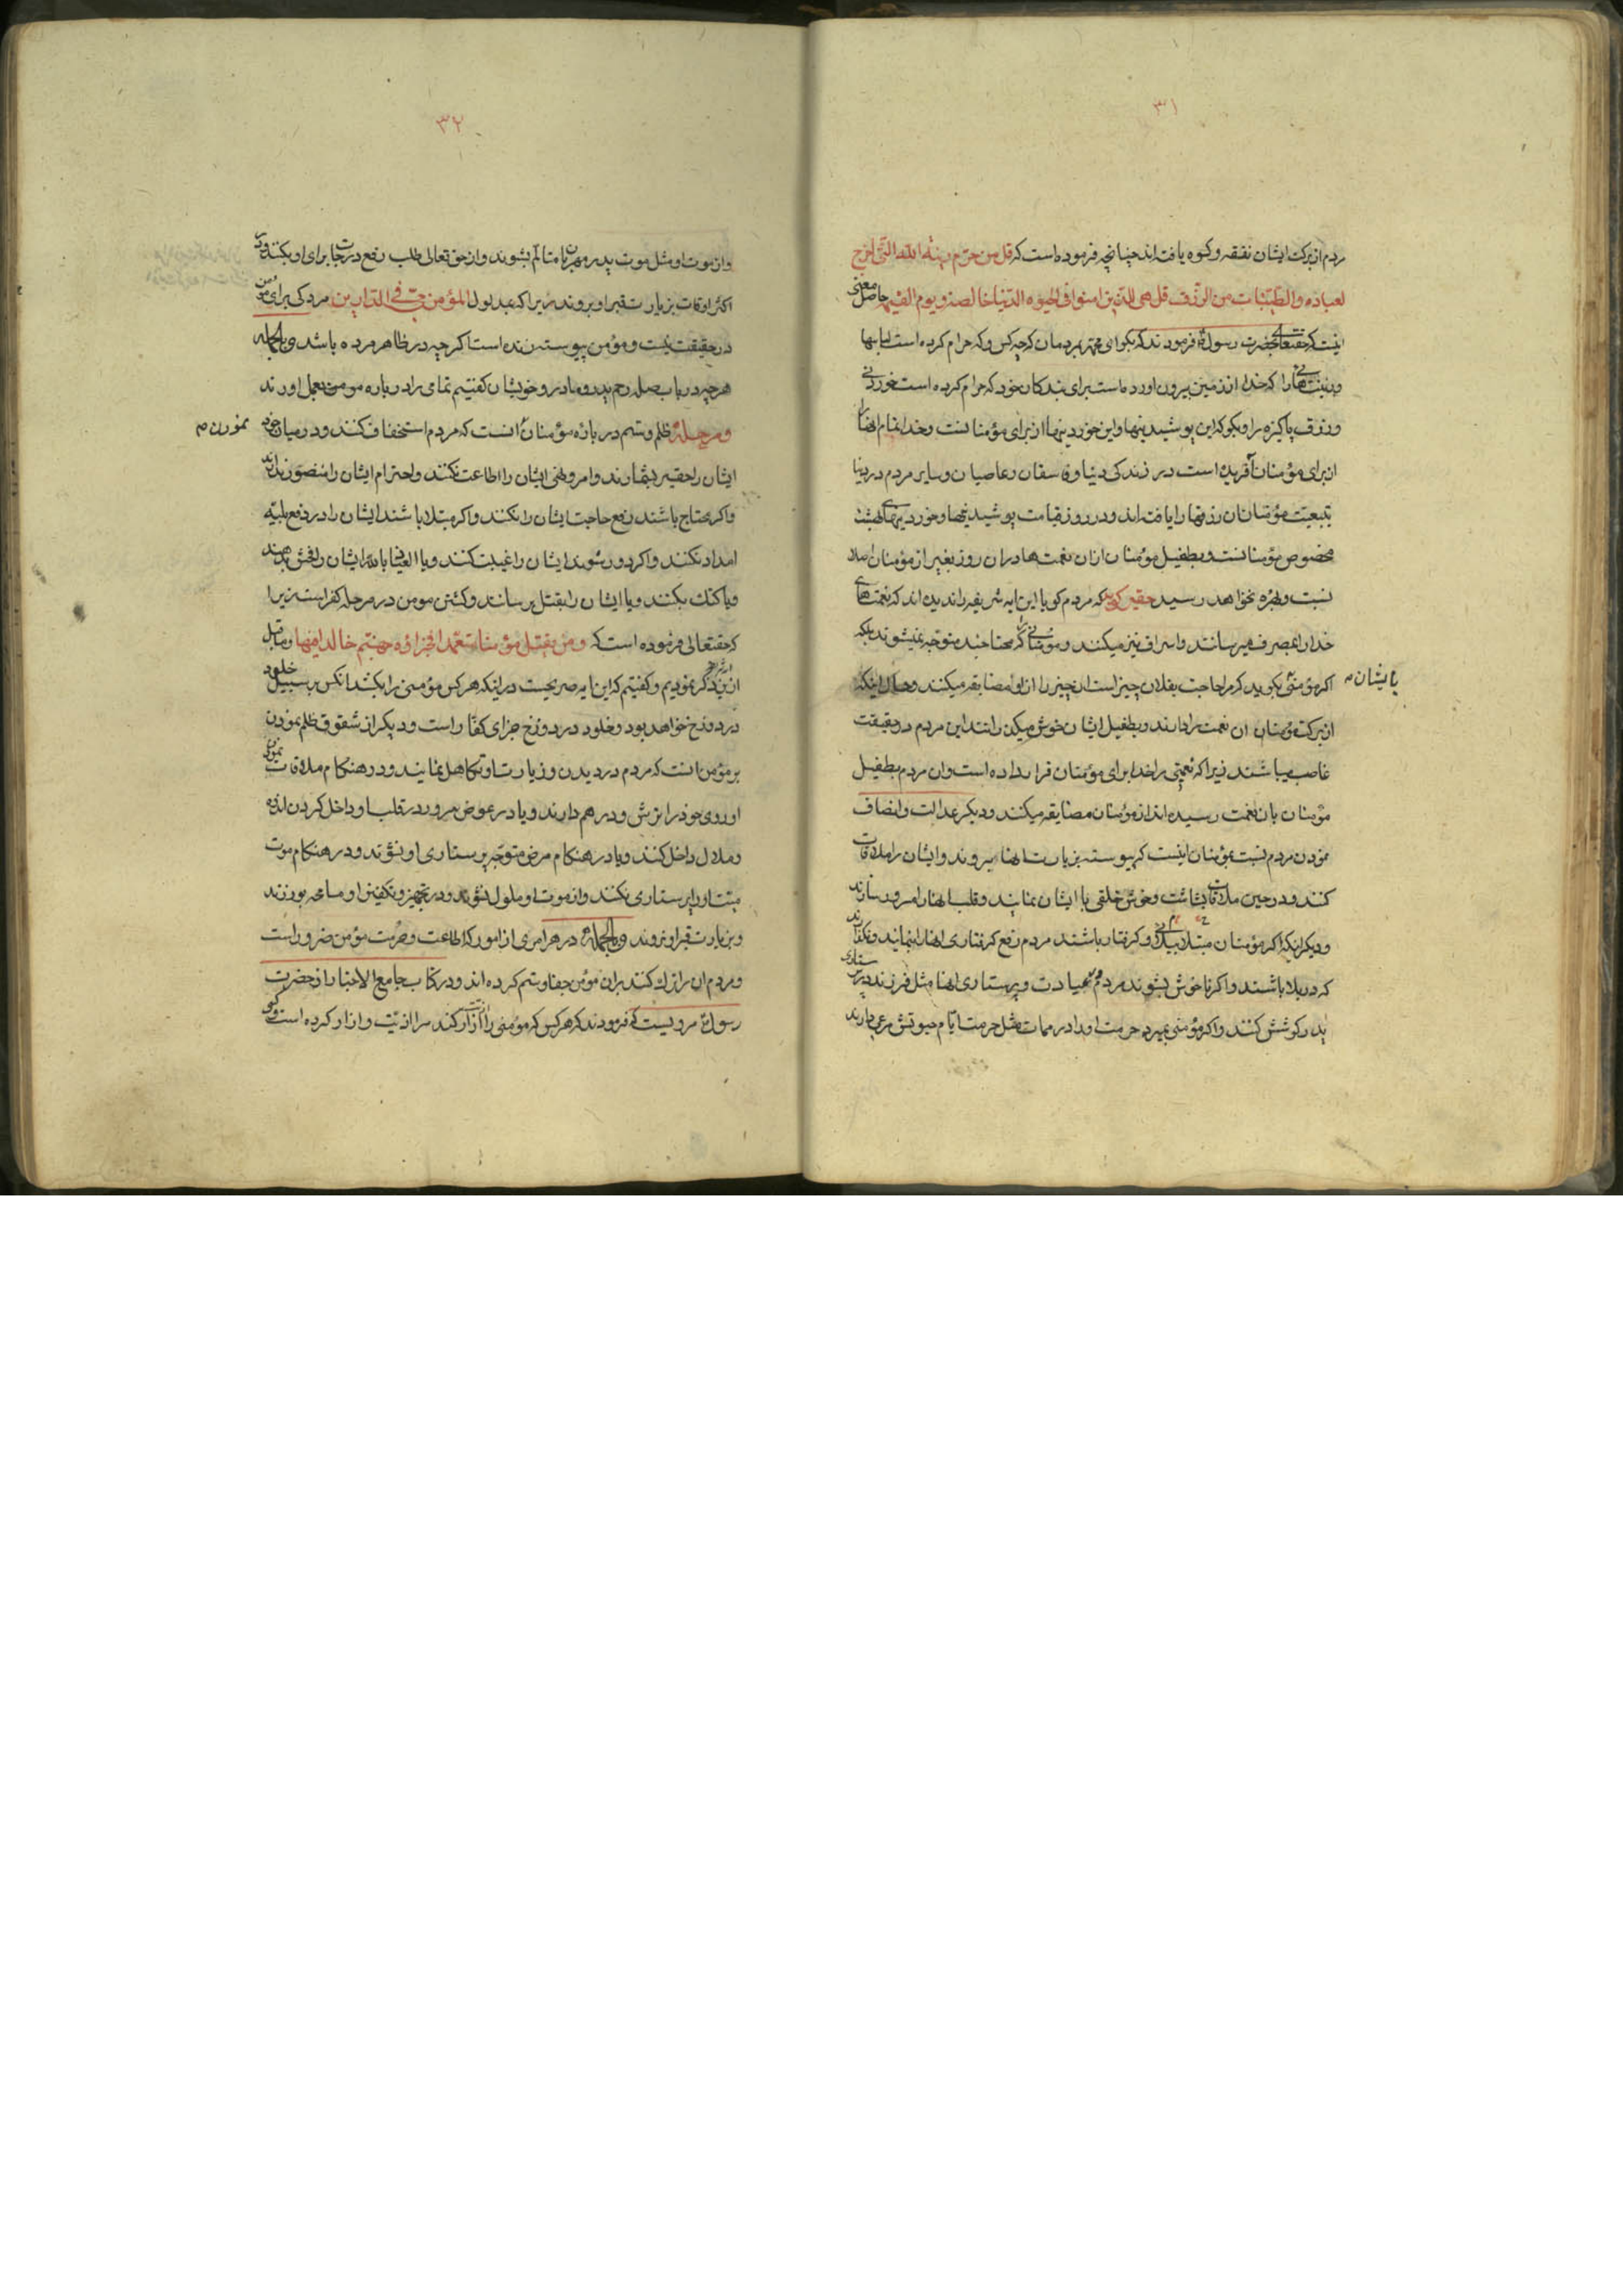 ۳۱
مردم از برکت ایشان نفقه و کسوه یافته‌اند چنانچه فرموده است که قل من حرّم زینة الله التی اخرج
لعباده و الطیّبات من الرزق قل هی للذین امنوا فی الحیوة الدنیا خالصة یوم القیمة حاصل معنی
اینست که حقتعالی بحضرت رسول فرمودند که بگو ای محمّد بمردمان که چه کس و که حرام کرده است لباسها
و زینت‌هائی را که خدا از زمین بیرون اورده است برای بندکان خود که حرام کرده است خوردنی
و رزق پاکیزه را و بگو که این پوشیدنیها و این خوردنیها از برای مؤمنانست و خدا تمام انها را
از برای مؤمنان آفریده است در زندکی دنیا و فاسقان و عاصیان و سایر مردم در دنیا
بتبعیّت مؤمنان رزقها را یافته‌اند و در روز قیامت پوشیدنیها و خوردنیهای بهشت
مخصوص مؤمنانست و بطفیل مؤمنان ازان نعمت‌ها دران روز بغیر از مؤمنان احدی را
نسبت و بهره نخواهد رسید حقیر کوید که مردم کویا این ایه شریفه را ندیده‌اند که نعمت‌های
خدا را بمصرف میرسانند و اسراف نیز میکنند و مؤمنانی که محتاجند متوجّه نمیشوند بلکه
اکر مؤمنی بکوید که مرا حاجت بفلان چیز است ان چیز را از او مضایقه میکنند و حال اینکه
بایشان
از برکت مؤمنان ان نعمت را دارند و بطفیل ایشان خوش میکذرانند این مردم در حقیقت
غاصب میباشند زیرا که نعمتی را خدا برای مؤمنان قرار داده است و ان مردم بطفیل
مؤمنان بان نعمت رسیده‌اند از مؤمنان مضایقه میکنند و دیکر عدالت و انصاف
نمودن مردم نسبت بمؤمنان اینست که پیوسته بزیارت انها بروند و ایشان را ملاقات
کنند و در حین ملاقات بشاشت و خوش خلقی با ایشان نمایند و قلب انها را مسرور سازند
و دیکر اینکه اکر مؤمنان مبتلا ببلائی و کرفتار باشند مردم رفع کرفتاری انها را بنمایند و نکذارند
که در بلا باشند و اکر ناخوش بشوند مردم بعیادت و پرستاری انها مثل فرزند در پرستاری
پدر کوشش کنند و اکر مؤمنی بمیرد حرمت او را در ممات مثل حرمت ایّام حیوتش مرعی دارند
۳۲
و از موت او مثل موت پدر مهربان متالّم بشوند و از حق تعالی طلب رفع درجات برای او بکنند و در
اکثر اوقات بزیارت قبر او بروند زیرا که بمدلول المؤمن حیّ فی الدارین مرکی برای مؤمن
در حقیقت نیست و مؤمن پیوسته زنده است اکرچه در ظاهر مرده باشد و بالجمله
هرچه در باب صله رحم پدر و مادر و خویشان کفتیم تمامی را در باره مومن بعمل اورند
و مرحلهٔ ظلم و ستم در باره مؤمنان انست که مردم استخفاف کنند و در میان خود
نمودن
ایشان را حقیر بشمارند و امر و نهی ایشان را اطاعت نکنند و احترام ایشان را منظور ندارند
و اکر محتاج باشند رفع حاجت ایشان را نکنند و اکر مبتلا باشند ایشان را در دفع بلیّه
امداد نکنند و اکر دور شوند ایشان را غیبت کنند و یا العیاذ بالله ایشان را فحش بدهند
و یا کتک بکنند و یا ایشان را بقتل برسانند و کشتن مومن در مرحله کفر است زیرا
که حقتعالی فرموده است که و من یقتل مؤمنا متعمّدا فجزاؤه جهنّم خالدا فیها و ما قبل
ازین ذکر نمودیم و کفتیم که این ایه صریحست در اینکه هر کس مؤمنی را بکشد انکس بر سبیل خلود
در دوزخ خواهد بود و خلود در دوزخ جزای کفّار است و دیکر از شقوق ظلم نمودن
بر مؤمن انست که مردم در دیدن و زیارت او تکاهل نمایند و در هنکام ملاقات نمودن
او روی خود را ترش و درهم دارند و یا در عوض سرور در قلب او داخل کردن اندوه
و ملال داخل کنند و یا در هنکام مرض متوجّه پرستاری او نشوند و در هنکام موت
میّت او را پرستاری نکنند و از موت او ملول نشوند و در تجهیز و تکفین او مسامحه بورزند
و بزیارت قبر او نروند و بالجملهٔ در هر امری از امور که اطاعت و حرمت مؤمن ضرور است
و مردم ان را ترک کنند بران مؤمن جفا و ستم کرده‌اند و در کتاب جامع الاخبار از حضرت
رسول مرویست که فرمودند که هر کس که مؤمنی را آزار کند مرا اذیّت و ازار کرده است و کسی